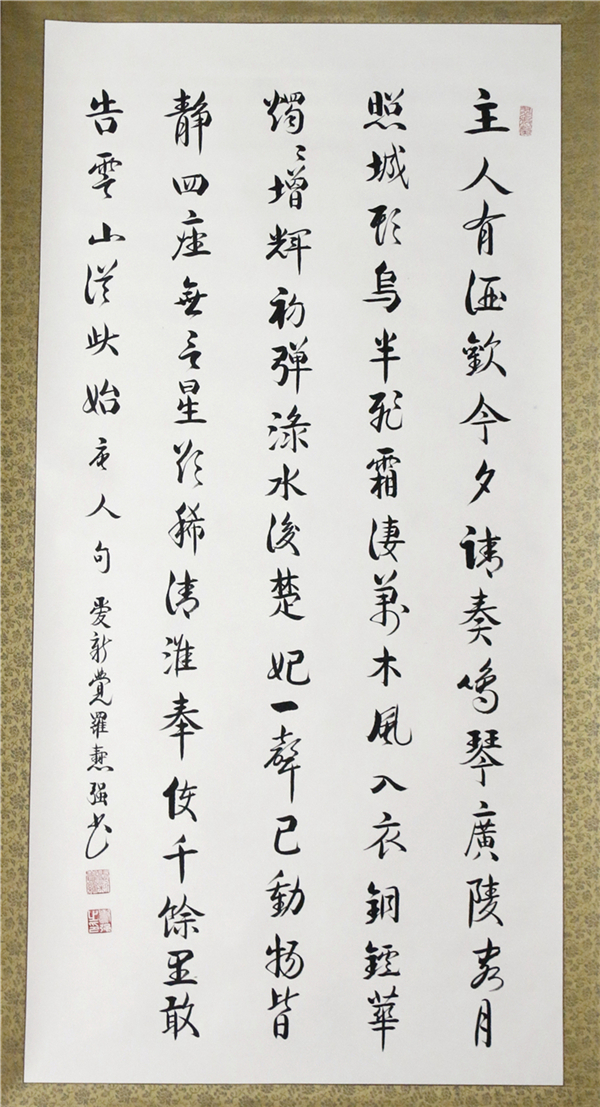 主人有酒歡今夕請奏鳴琴廣陵客月
照城頭烏半飛霜淒萬木風入衣銅鑪華
燭〻增輝初彈淥水後楚妃一聲已動物皆
靜四座無言星欲稀清淮奉使千餘里敢
告雲山從此始唐人句愛新覺羅强書